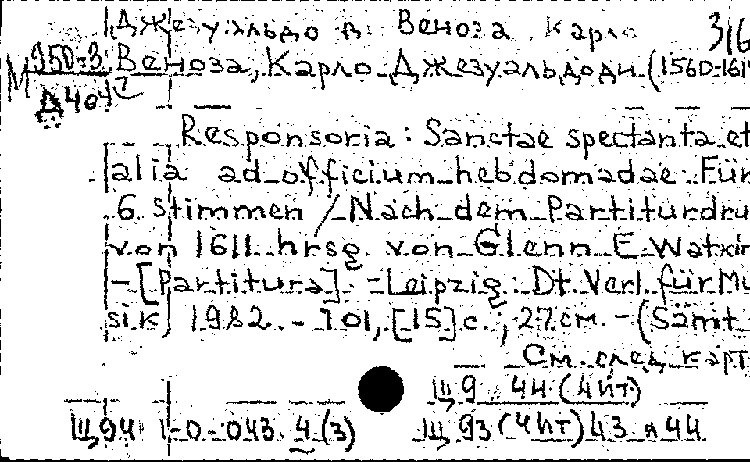 Джезуальдо ди Веноза Карло 316
М 950-3 Веноза, Карло Джезуальдо ди (1560-161
Д404
Responsoria: Sanctae spectanta et
alia ad officium hebdomadae. Für
6 Stimmen / Nach dem Partiturdru
von 1611 hrsg. von Glenn E Watkin
- [Partitura]. - Leipzig: Dt. Verl. für Mu
sik, 1982. - 101, [15] с.; 27 см. - (Sämt
См. след. карт
Щ9 4И (4Ит)
Щ94 1-0-043.4(3) Щ93(4Ит)43 я44